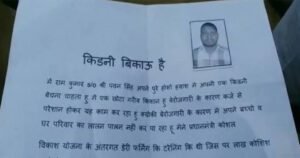 किडनी बिकाऊ है
मै राम कुमार s/o श्री पवन सिंह अपने पूरे होशो हवास में अपनी एक किडनी
बेचना चाहता हू मै एक छोटा गरीब किसान हू बेरोजगारी के कारण कर्ज से
परेशान होकर यह काम कर रहा हू क्योंकी बेरोजगारी के कारण मे अपने बच्चो व
घर परिवार का लालन पालन नही कर पा रहा हू मेने प्रधानमंत्री कोशल
विकास योजना के अंतरगत डेरी फर्मिंग कि टरेनिंग कि थी जिस पर लाख कोशिश